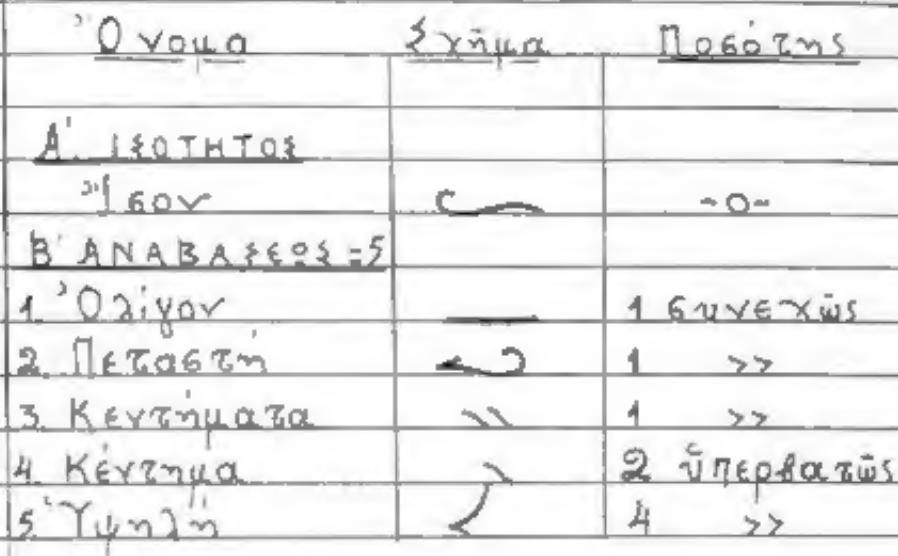 Ὄνομα Σχῆμα Ποσότης
Α΄. ΙΣΟΤΗΤΟΣ
Ἴσον -0-
Β΄ ΑΝΑΒΑΣΕΩΣ=5
1. Ὀλίγον 1 συνεχῶς
2. Πεταστή 1 >>
3. Κεντήματα 1 >>
4. Κέντημα 2 ὑπερβατῶς
5. Ὑψηλή 4 >>